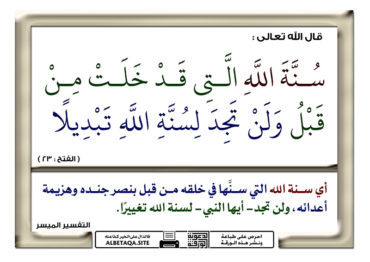 قال الله تعالى :
سُنَّةَ اللَّهِ الَّتِي قَدْ خَلَتْ مِنْ
قَبْلُ وَلَنْ تَجِدَ لِسُنَّةِ اللَّهِ تَبْدِيلًا
( الفتح : ٢٣ )
أي سنة الله التي سنَّها في خلقه من قبل بنصر جنده وهزيمة
أعدائه ، ولن تجد - أيها النبي - لسنة الله تغييرًا.
التفسير الميسر
احرص على طباعة
ونشر هذه الورقة
فالدال على الخير كفاعله
ALBETAQA.SITE